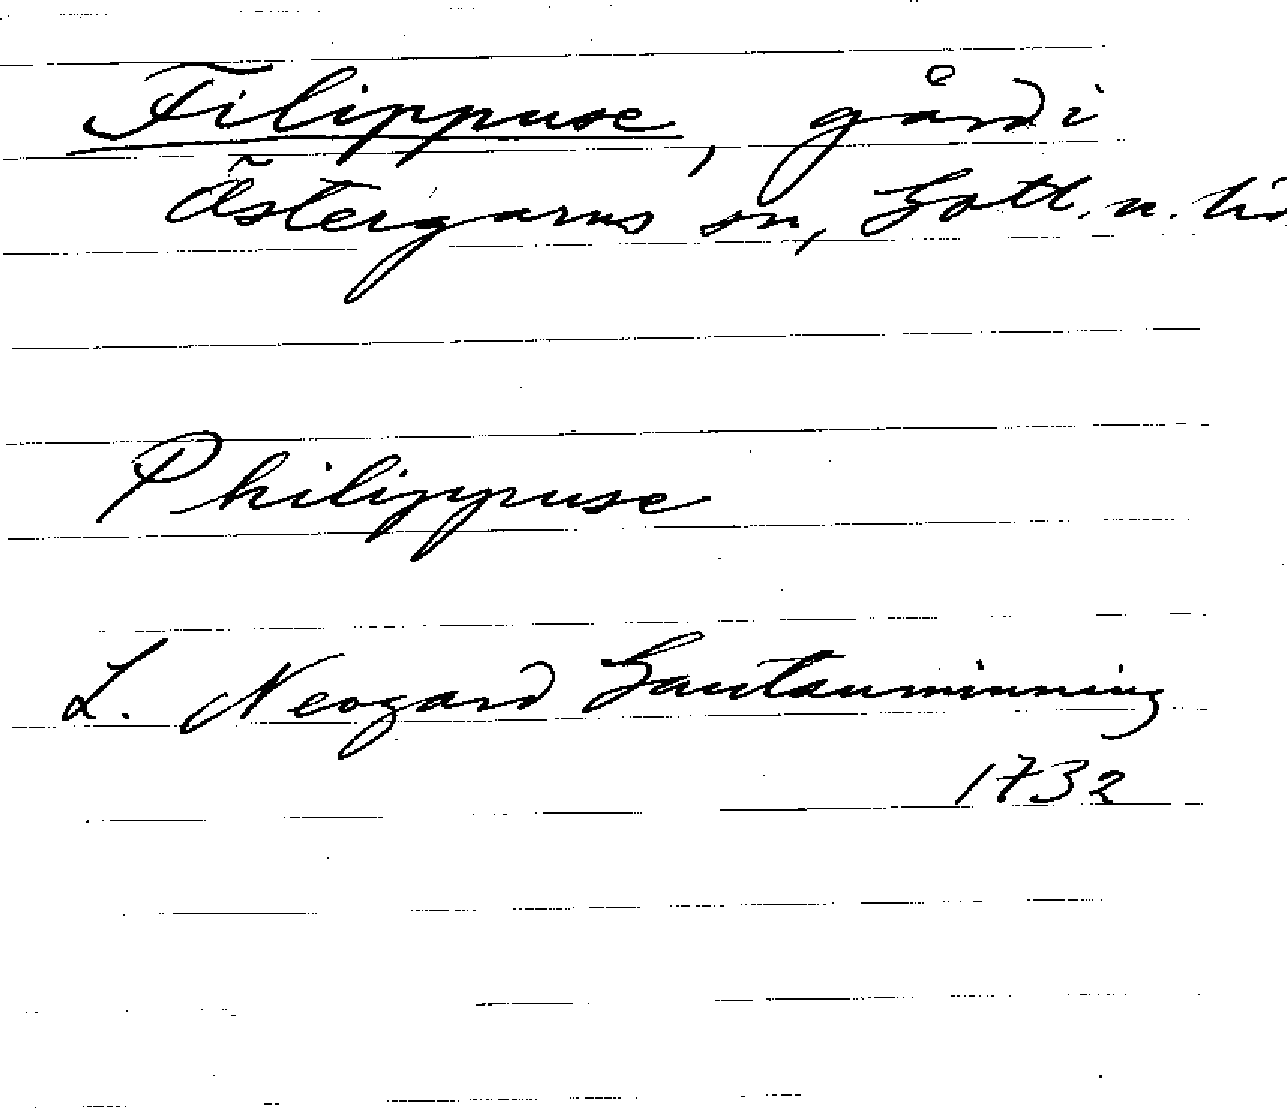 Filippuse, gård i
Östergarns sn, Gotl. n. hd
Philippuse
L. Neogard Gautauminning
1732